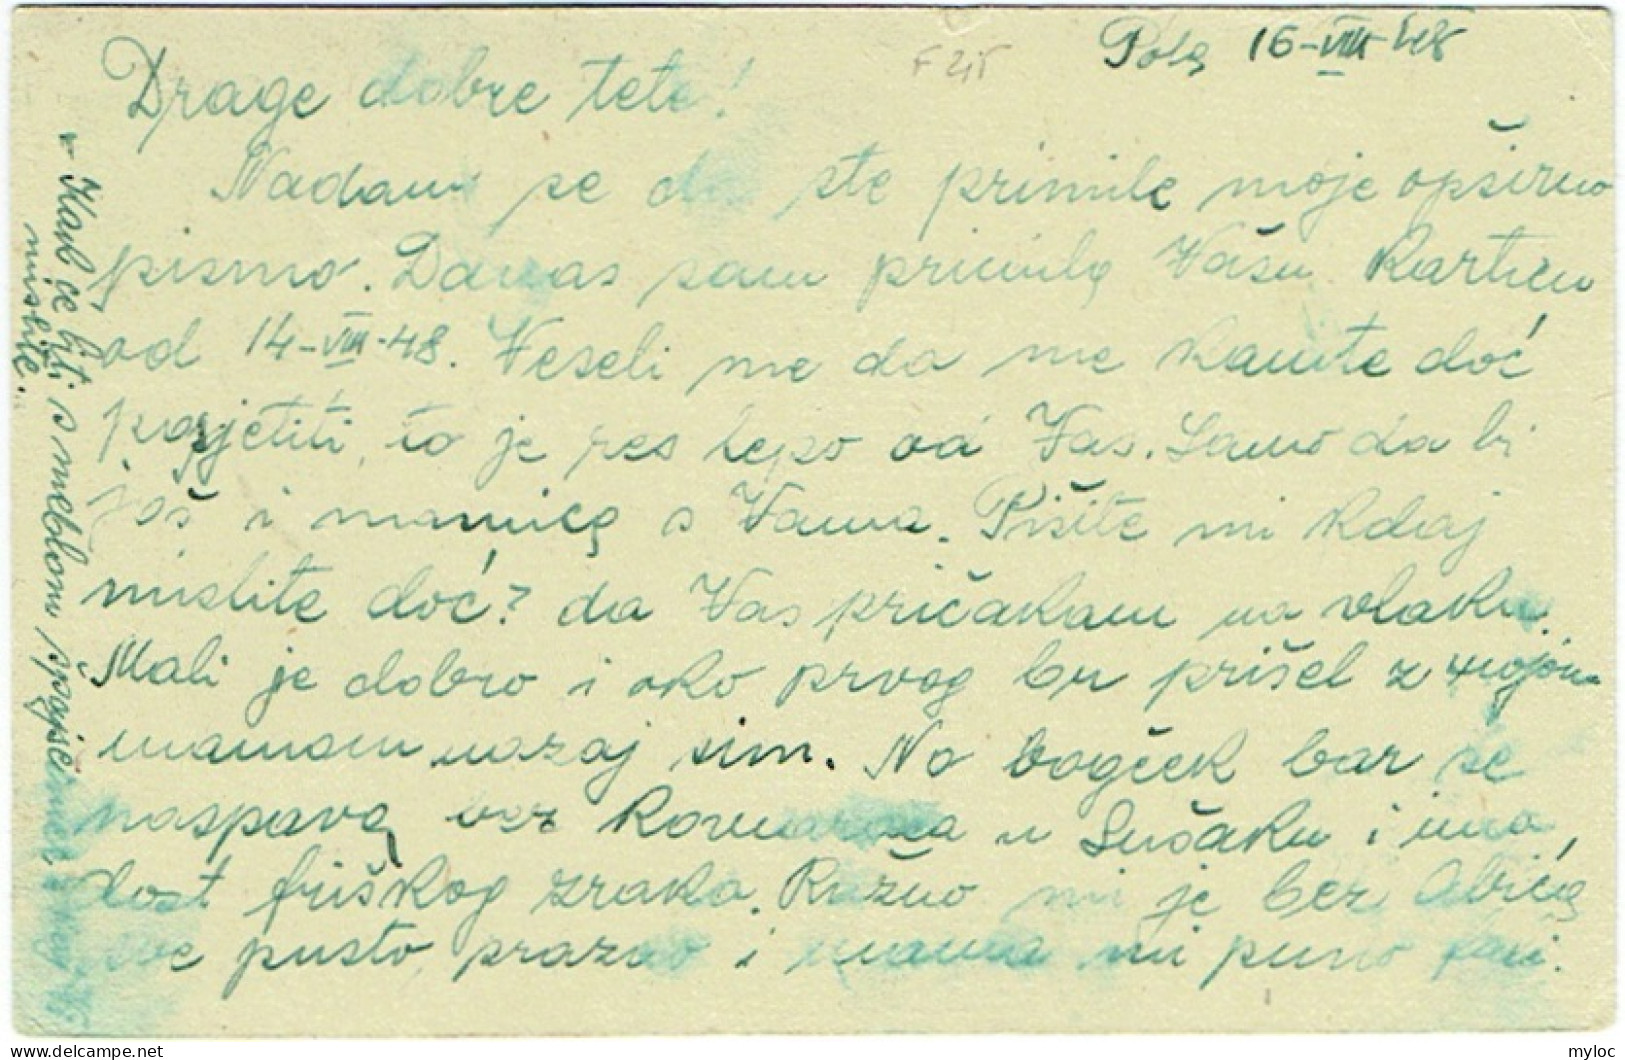 Pola 16-VIII-48
Drage dobre tete!
Nadam se da ste primile moje opširno
pismo. Danas sam primila Vašu Karticu
od 14-VIII-48. Veseli me da me kanite doć
posjetiti, to je res lepo od Vas. Samo da bi
još i mamica s Vama. Pišite mi kdaj
mislite doć? da Vas pričakam na vlaku.
Mali je dobro i oko prvog bu prišel z mojom
mamom nazaj sim. No bogček bar se
naspava bez Komaraca u Sušaku i ima
dost friškog zraka. Ružno mi je bez Abića,
sve pusto, prazno i mama mi puno fali.
Kak će biti s meblom
mislite.
myloc